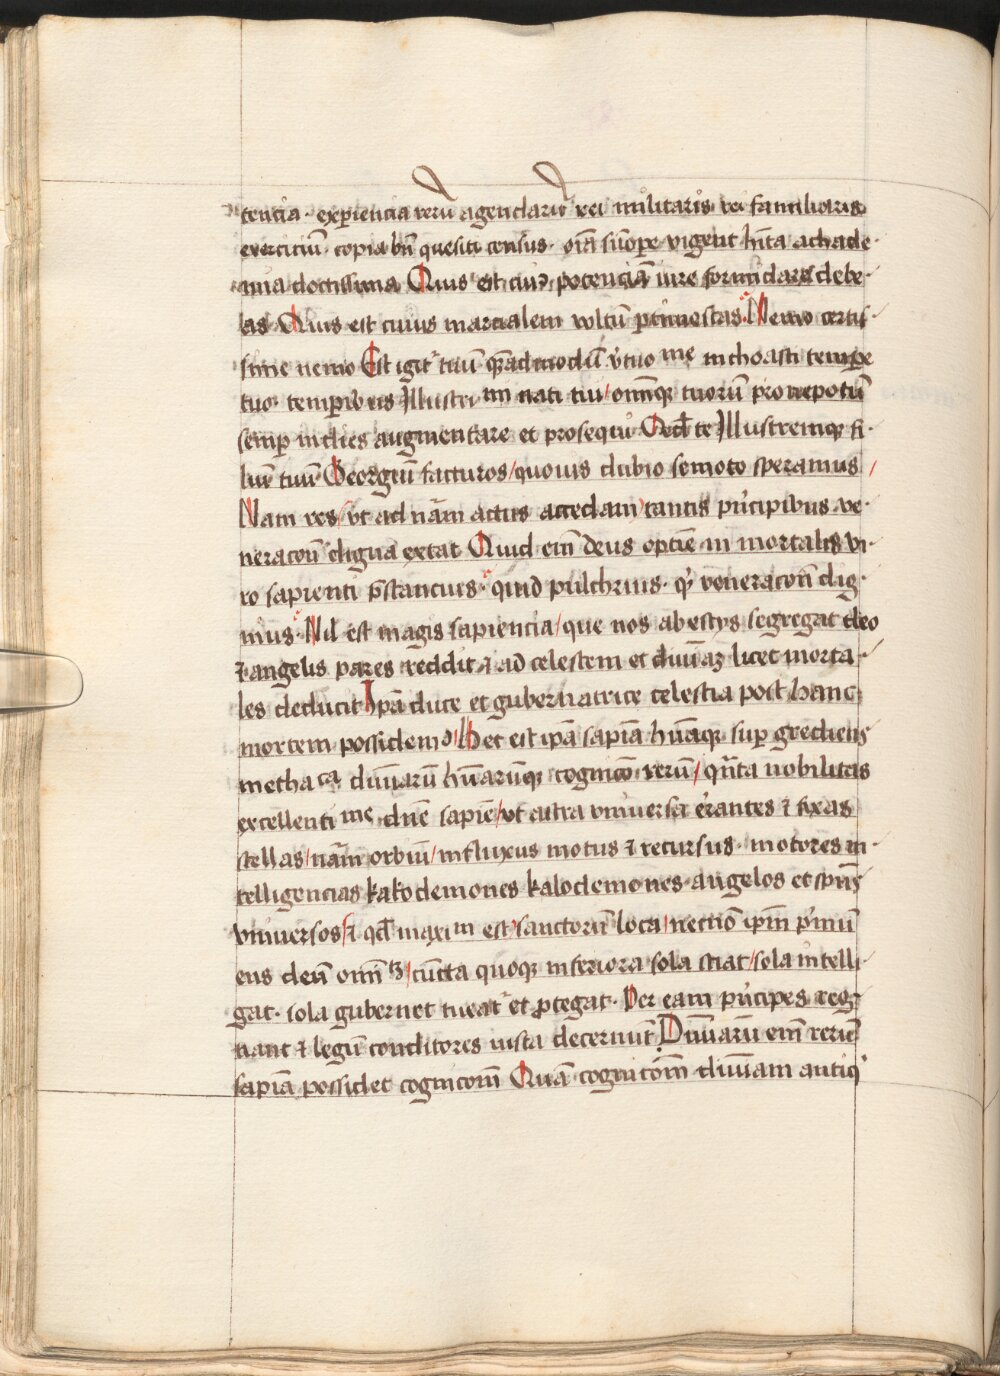 tencia · experiencia rerū agendarū rei militaris rei familiaris
exercitiū · copia bn̄ quesiti census · oīa sūope vigent hn̄ta achade·
mia doctissima Quis est cui⁹ potenciā iure formidare debe·
as Quis est cuius marcialem voltū ptimestas · Nemo certis·
sime nemo Est igit᷑ tuū q̄admodū v̓tuo me inchoasti tempe
tuo · temperibus Illustri mi nati tui / omniūq; tuorū pronepotū
semp indies augmentare et prosequi Qd̄ te Illustremq; fi·
liū tuū Georgiū facturos / quouis dubio semoto speramus /
Nam res / vt ad nr̄am actus accedam / tantis pn̓cipibus ve·
neracōn digna extat Quid em̄ deus optīe in mortalis vi·
ro sapienti p̄stancius · quid pulchrius · q̓ veneracōn dig·
nius · Nil est magis sapiencia / que nos ab estys segregat deo
⁊ angelis pares reddit ⁊ ad celestem et diuinaꝫ licet morta·
les deducit Ipā duce et gubernatrice celestia post hanc
mortem possidem⁹ Hec est ipā sapīa hūāq; sup grediens
metha ca diuinarū hūarūq; cognicō rerū / qn̄ta nobilitas
excellenti me dn̄e sapīe / vt astra vniuersa errantes ⁊ fixas
stellas / nām orbiū / influxus motus ⁊ recursus · motores in·
telligencias kakodemones kalodemones · angelos et spūs
vniuersos / ⁊ qd̄ maxi m est / sanctorū loca / necnō ipm̄ pn̓mū
ens deū omn̄ tꝫ / cūcta quoq; inferiora sola sciat / sola intelli·
gat · sola gubernet tueat᷑ et ptegat · Per eam pn̓cipes reg·
nant ⁊ legū conditores iusta decernūt Diuinarū em̄ rerū
sapīa possidet cognicom̄ Quā cognicōm diuinam antiq̓